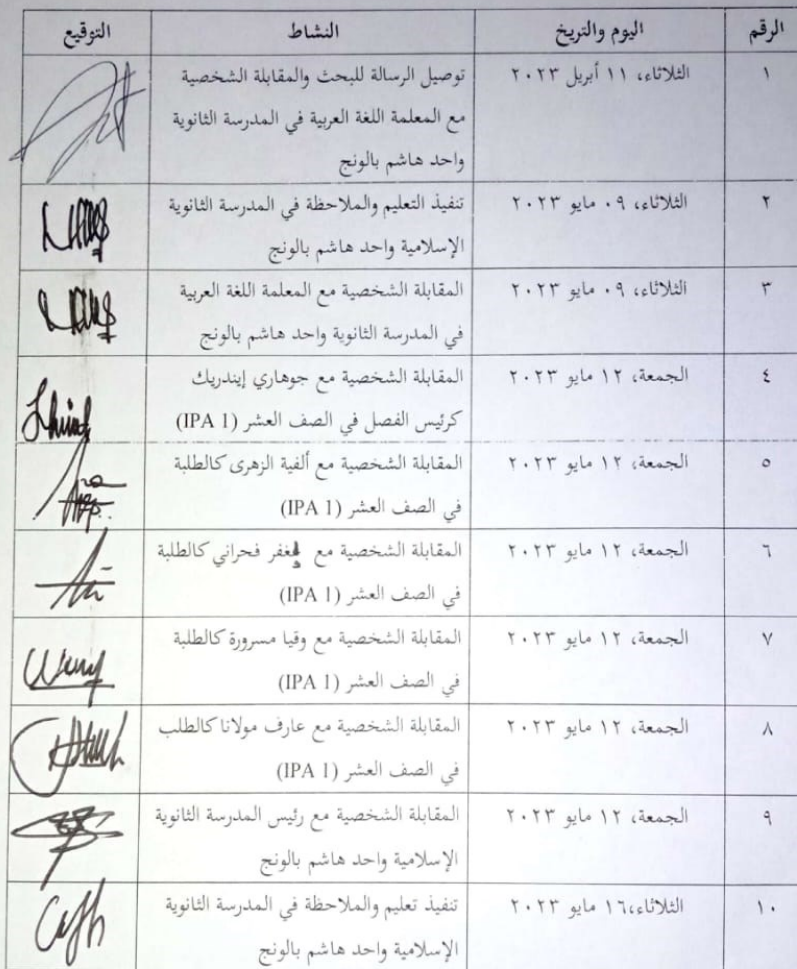 الرقم اليوم والتريخ النشاط التوقيع
١ الثلاثاء، ١١ أبريل ٢٠٢٣ توصيل الرسالة للبحث والمقابلة الشخصية
مع المعلمة اللغة العربية في المدرسة الثانوية
واحد هاشم بالونج
٢ الثلاثاء، ٠٩ مايو ٢٠٢٣ تنفيذ التعليم والملاحظة في المدرسة الثانوية
الإسلامية واحد هاشم بالونج
٣ الثلاثاء، ٠٩ مايو ٢٠٢٣ المقابلة الشخصية مع المعلمة اللغة العربية
في المدرسة الثانوية واحد هاشم بالونج
٤ الجمعة، ١٢ مايو ٢٠٢٣ المقابلة الشخصية مع جوهاري إيندريك
كرئيس الفصل في الصف العشر (IPA 1)
٥ الجمعة، ١٢ مايو ٢٠٢٣ المقابلة الشخصية مع ألفية الزهرى كالطلبة
في الصف العشر (IPA 1)
٦ الجمعة، ١٢ مايو ٢٠٢٣ المقابلة الشخصية مع فحراني كالطلبة
في الصف العشر (IPA 1)
٧ الجمعة، ١٢ مايو ٢٠٢٣ المقابلة الشخصية مع وقيا مسرورة كالطلبة
في الصف العشر (IPA 1)
٨ الجمعة، ١٢ مايو ٢٠٢٣ المقابلة الشخصية مع عارف مولانا كالطلب
في الصف العشر (IPA 1)
٩ الجمعة، ١٢ مايو ٢٠٢٣ المقابلة الشخصية مع رئيس المدرسة الثانوية
الإسلامية واحد هاشم بالونج
١٠ الثلاثاء،١٦ مايو ٢٠٢٣ تنفيذ تعليم والملاحظة في المدرسة الثانوية
الإسلامية واحد هاشم بالونج